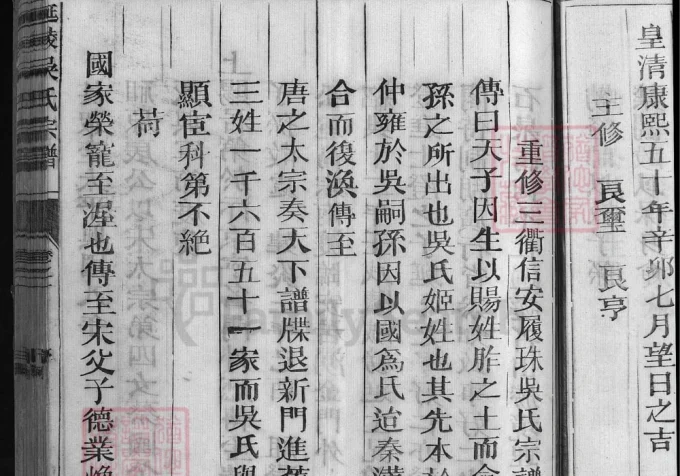 皇清康熙五十年辛卯七月望日之吉
主修 良璽 良亨
重修三衢信安履珠吳氏宗譜
傳曰天子因生以賜姓胙之土而命
孫之所出也吳氏姬姓也其先本於
仲雍於吳嗣孫因以國爲氏迨秦漢
合而復渙傳至
唐之太宗奏天下譜牒退新門進舊
三姓一千六百五十一家而吳氏與
顯宦科第不絶
荷
國家榮寵至渥也傳至宋父子德業
延陵吳氏宗譜